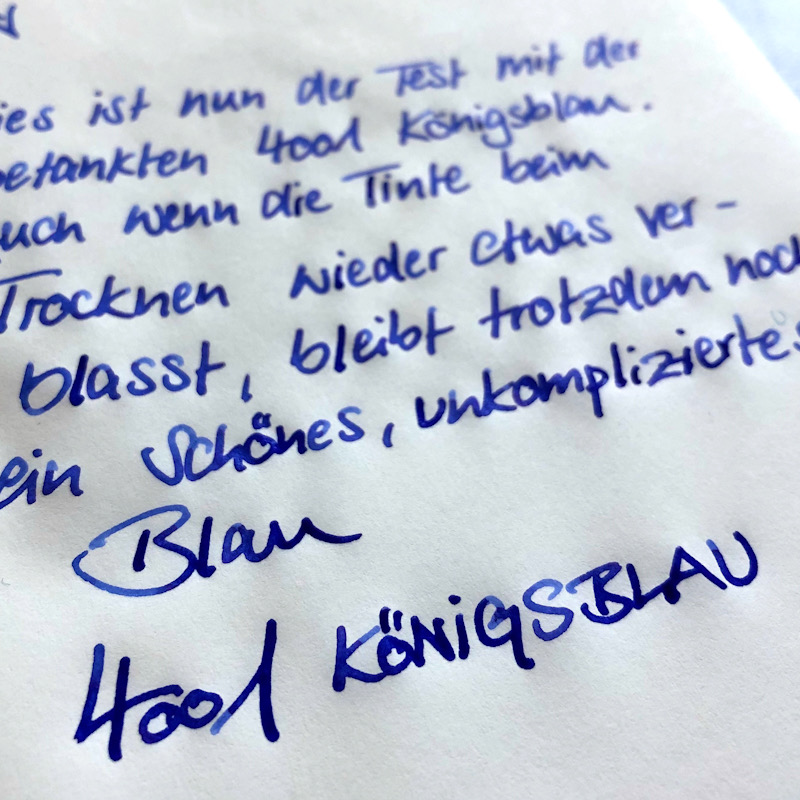 ies ist nun der Test mit der
betankten 4001 Königsblau.
uch wenn die Tinte beim
Trocknen wieder etwas ver-
blasst, bleibt trotzdem noch
ein schönes, unkompliziertes
Blau
4001 KÖNiGSBLAU